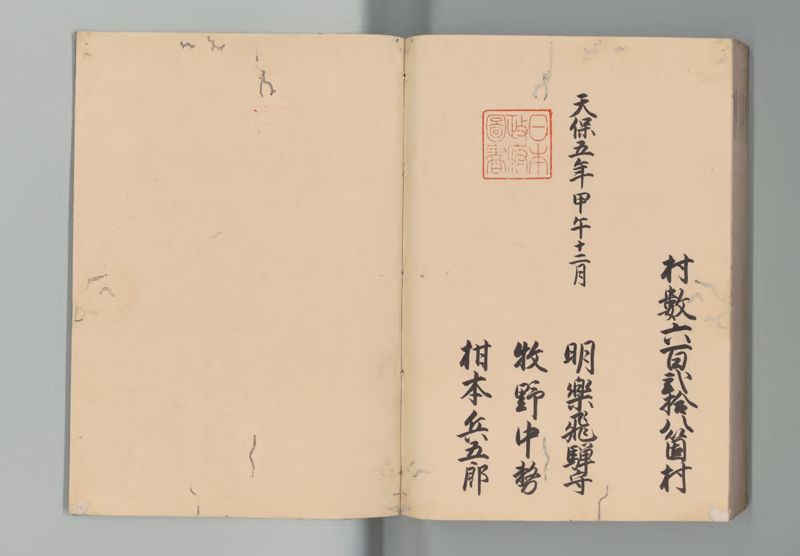 村數六百弐拾八箇村
天保五年甲午十二月
明樂飛騨守
牧野中務
柑本兵五郎
日本政府圖書